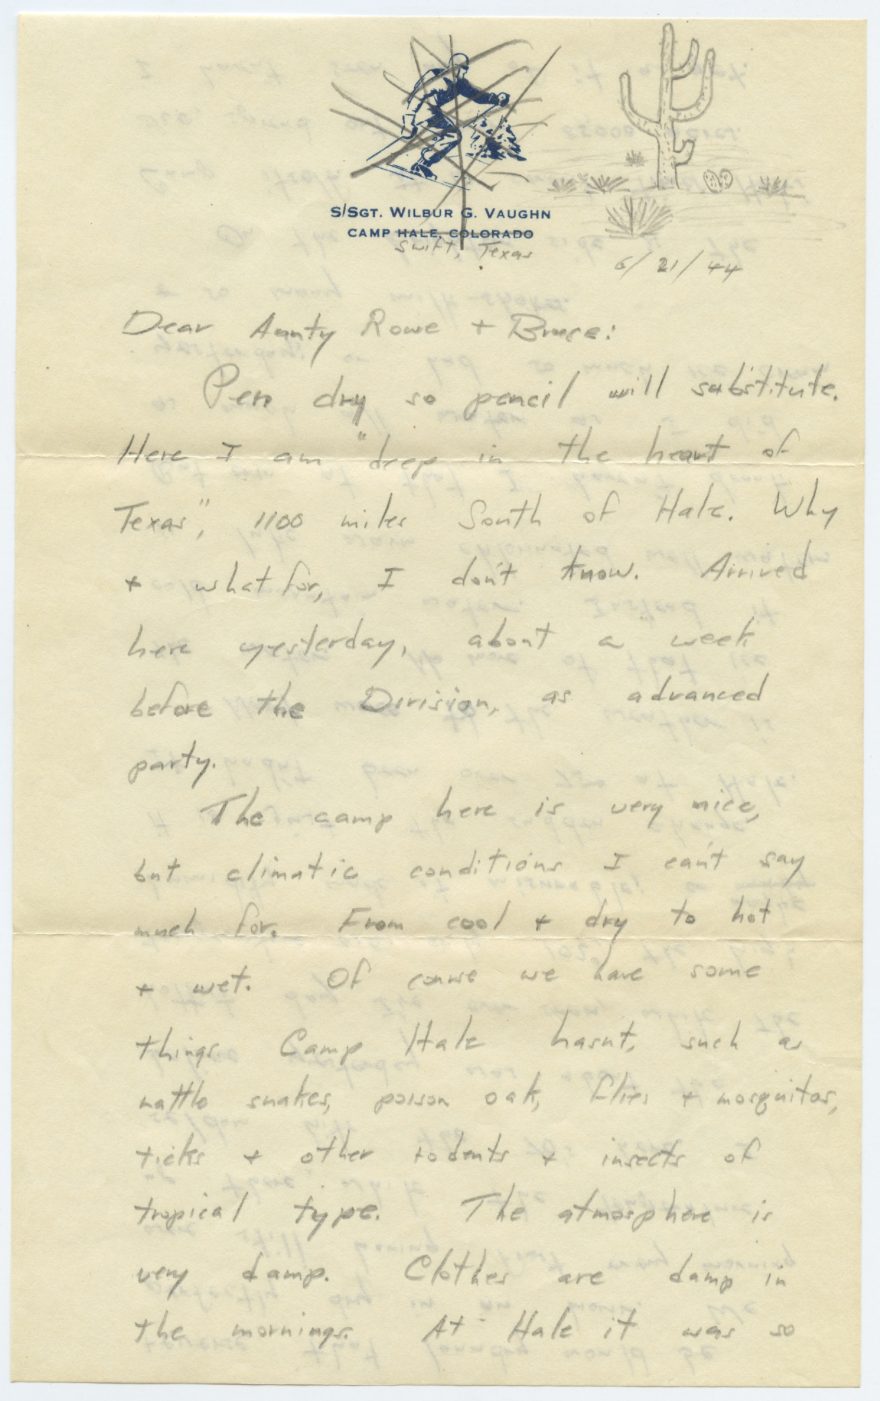 S/SGT. WILBUR G. VAUGHN
CAMP HALE, COLORADO
Swift, Texas
6/21/44
Dear Aunty Rowe + Bruce:
Pen dry so pencil will substitute.
Here I am "deep in the heart of
Texas", 1100 miles South of Hale. Why
+ what for, I don't know. Arrived
here yesterday, about a week
before the Division, as advanced
party.
The camp here is very nice,
but climatic conditions I can't say
much for. From cool + dry to hot
+ wet. Of course we have some
things Camp Hale hasnt, such as
rattle snakes, poison oak, flies + mosquitos,
ticks + other rodents + insects of
tropical type. The atmosphere is
very damp. Clothes are damp in
the mornings. At Hale it was so